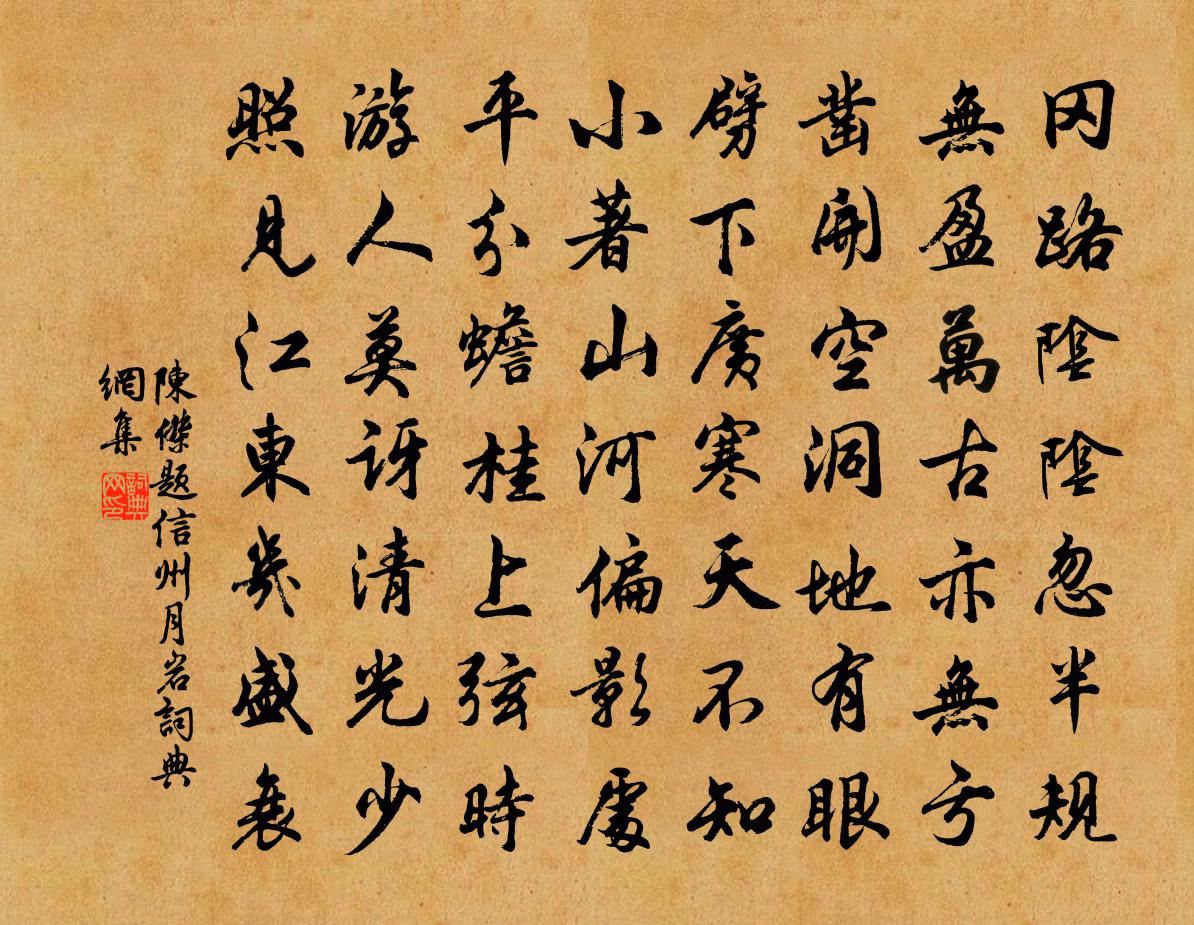 冈路陰陰忽半規
無盈萬古亦無亏
凿開空洞地有眼
劈下廣寒天不知
小著山河偏影處
平分蟾桂上弦時
游人莫訝清光少
照見江東幾盛衰
陳傑題信州月岩詞典
網集
詞典
网印